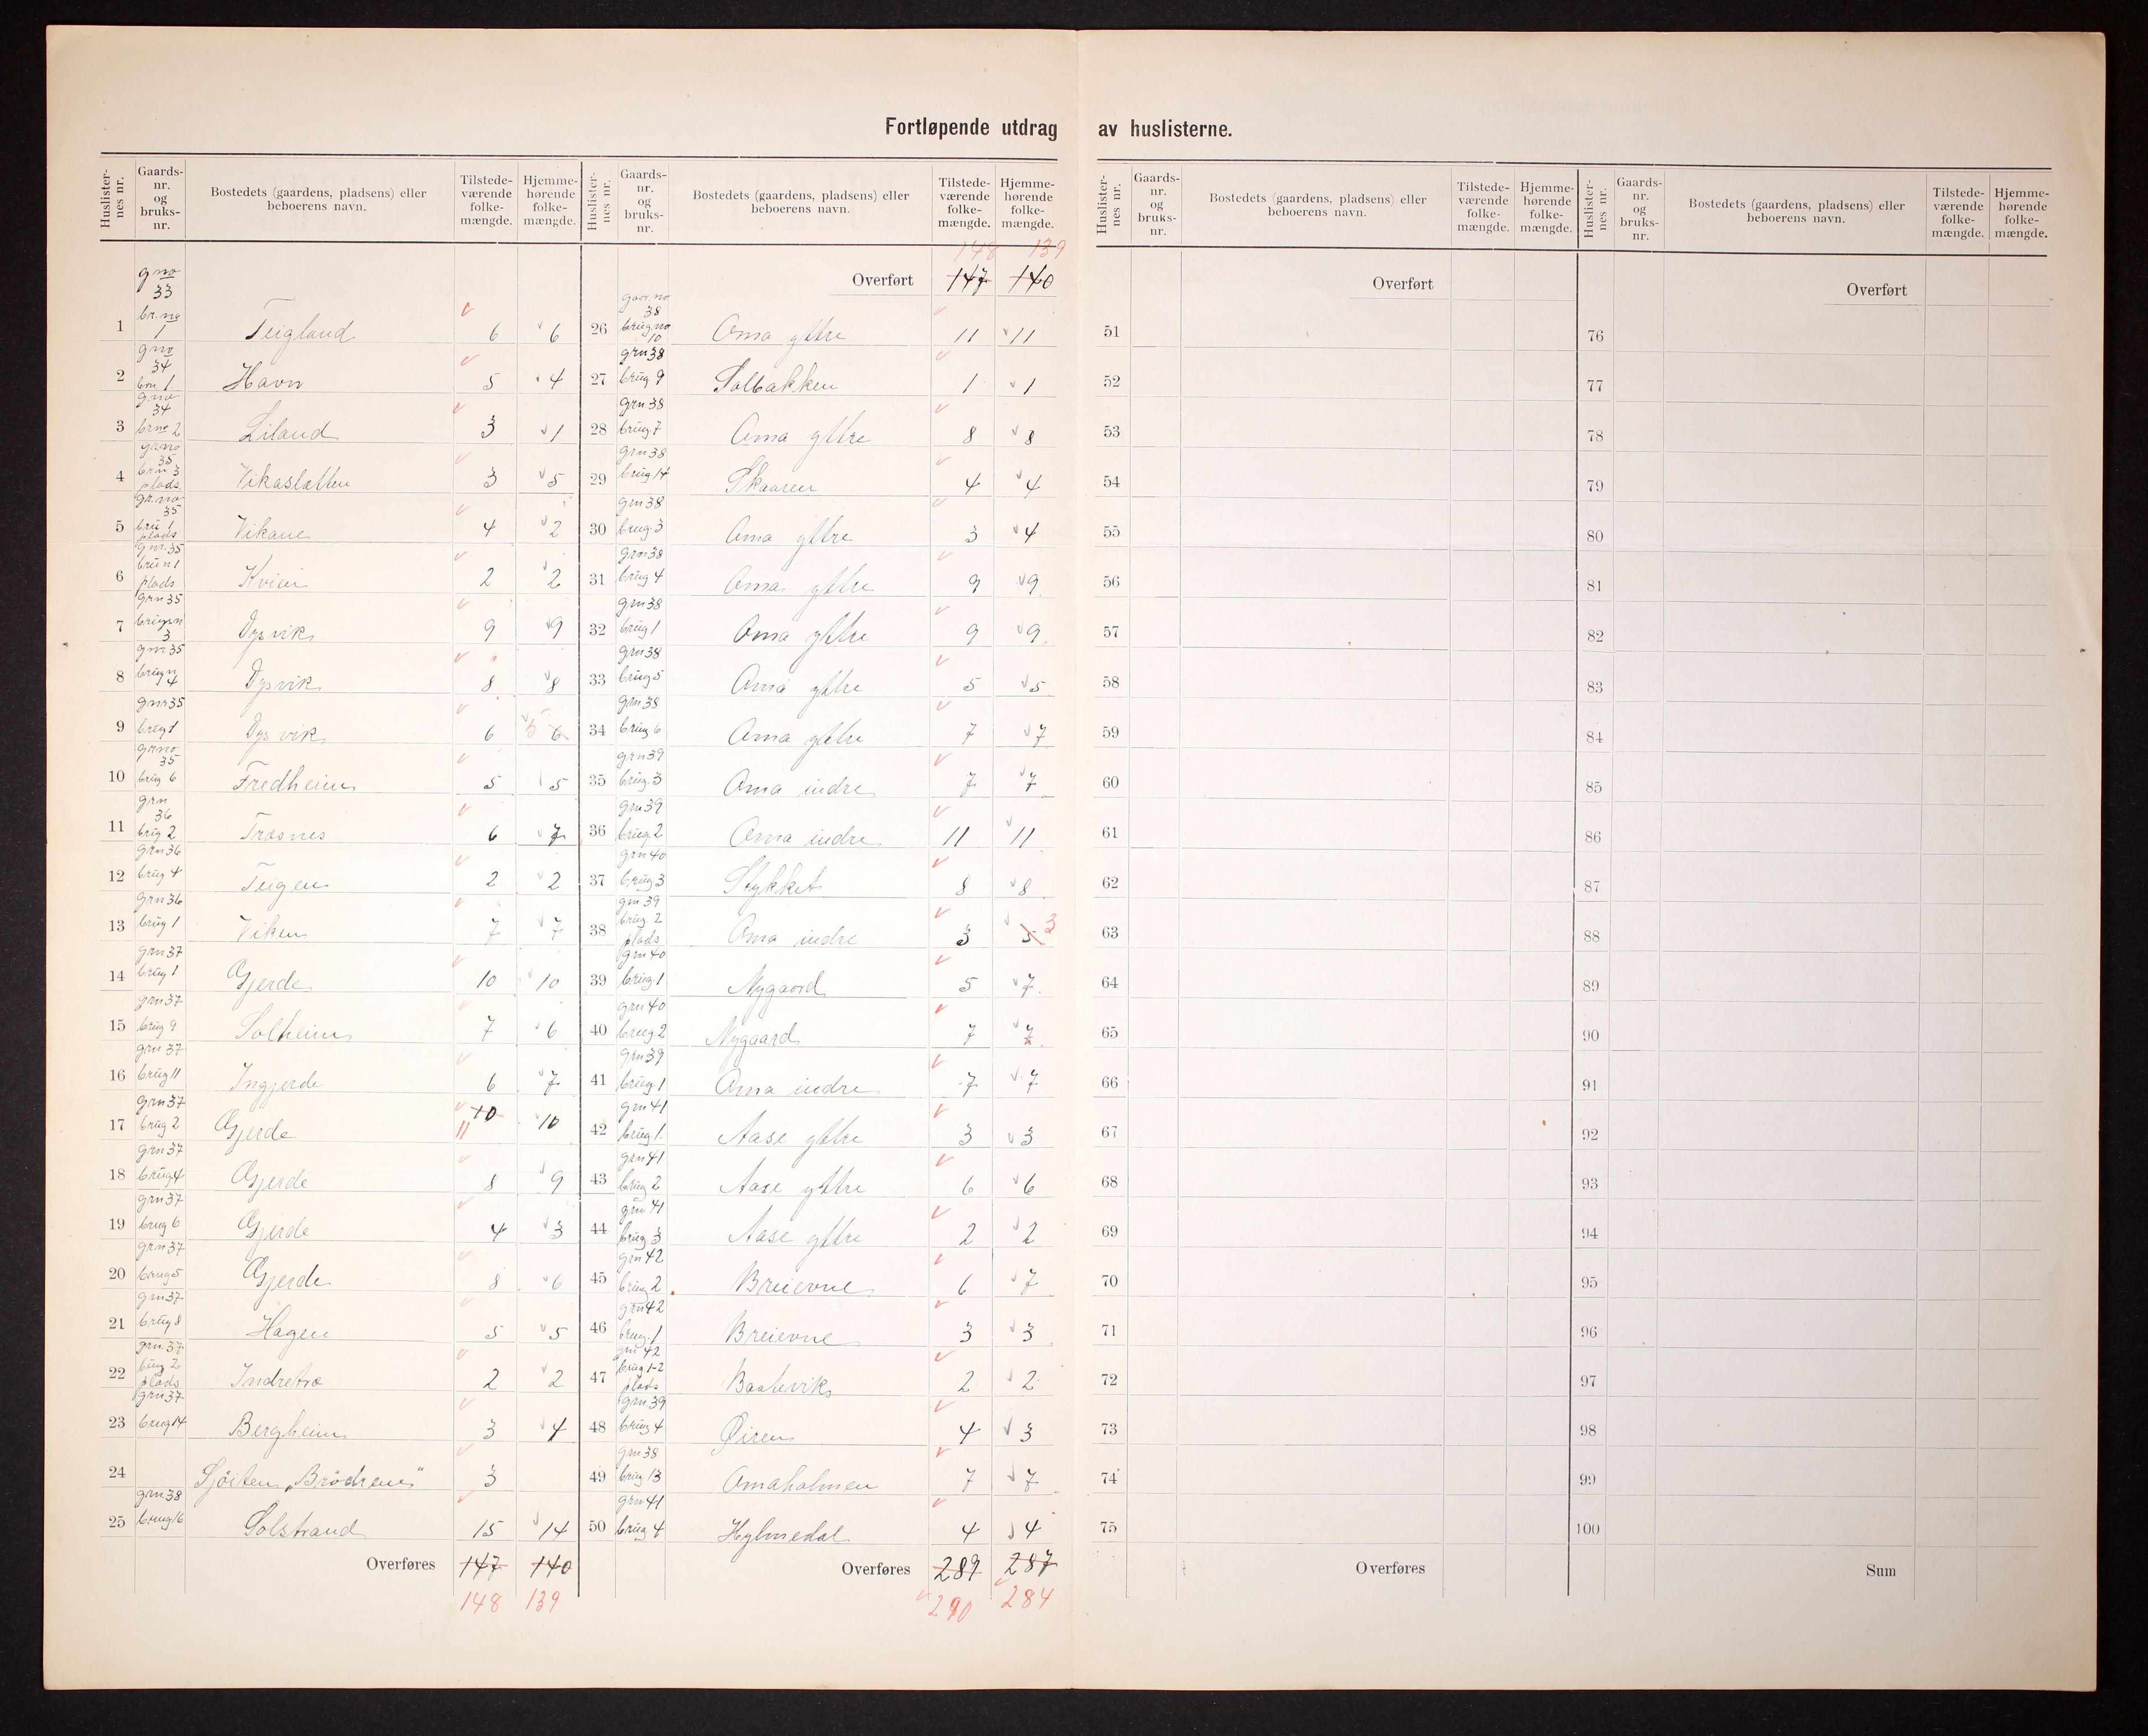 Fortløpende utdrag av huslisterne.
Huslister-nes nr. Gaards-nr. og bruks-nr. Bostedets (gaardens, pladsens) eller beboerens navn. Tilstede-værende folke-mængde. Hjemme-hørende folke-mængde.
1 gno 33 br.no 1 Teigland 6 6
2 gno 34 brn. 1. Havn 5 4
3 gno 34 brno 2 Liland 3 1
4 grno 35 brn 3 plads Vikaslatten 3 5
5 gr.no 35 bru 1 plads Vikane 4 2
6 gnr. 35 brün 1 plads Kvien 2 2
7 grn 35 3 Dysvik 9 9
8 gnr 35 brügn 4 Dysvik 8 8
9 gnr 35 brug 1 Dysvik 6 5 6
10 grno 35 brüg 6 Fredheim 5 5
11 grn 36 brüg 2 Trosnes 6 7
12 grn 36 brüg 4 Teigen 2 2
13 grn 36 brüg 1 Viken 7 7
14 grn 37 brüg 1 Gjerde 10 10
15 grn 37 brüg 9 Solheim 7 6
16 grn 37 brüg 11 Ingjerde 6 7
17 grn 37 brüg 2 Gjerde 10 11 10
18 grn 37 brüg 4 Gjerde 8 9
19 grn 37 brug 6 Gjerde 4 3
20 grn 37 brug 5 Gjerde 8 6
21 grn 37 brüg 8 Hagen 5 5
22 grn. 37 brüg 2 plads Indretræ 2 2
23 grn 37 brug 14 Bergheim 3 4
24 Sjöiten „Brödrene" 3
25 grn 38 brug 16 Solstrand 15 14
Overføres 147 140
148 139
Huslister-nes nr. Gaards-nr. og bruks-nr. Bostedets (gaardens, pladsens) eller beboerens navn. Tilstede-værende folke-mængde. Hjemme-hørende folke-mængde.
148 139
Overført 147 140
26 38 brug no 10 Oma yttre 11 11
27 grn 38 brüg 9 Solbakken 1 1
28 grn 38 brüg 7 Oma yttre 8 8
29 grn 38 brüg 14 Skaaren 4 4
30 grn 38 brug. 3 Oma yttre 3 4
31 grn 38 brüg 4 Oma yttre 9 9
32 grn 38 brüg 1 Oma yttre 9 9
33 grn 38 brüg 5 Oma yttre 5 5
34 grn 38 brüg 6 Oma yttre 7 7
35 grn 39 brüg. 3 Oma indre 7 7
36 grn 39 brüg. 2 Oma indre 11 11
37 grn 40 brüg 3 Stykket 8 8
38 grn 39 brüg. 2 plads Oma indre 3 5 3
39 grn 40 brüg. 1 Nygaard 5 7
40 grn 40 brüg 2 Nygaard 7 7
41 grn 39 brüg. 1 Oma indre 7 7
42 grn 41 brüg 1. Aase yttre 3 3
43 grn 41 brüg 2 Aase yttre 6 6
44 grn 41 brüg. 3 Aase yttre 2 2
45 grn 42 brüg 2 Breievne 6 7
46 grn 42 brug. 1 Breievne 3 3
47 grn 42 brüg 1-2 plads Baatevik 2 2
48 grn. 39 brüg 4 Øiren 4 3
49 grn 38 brüg. 13 Omaholmen 7 7
50 grn 41 brüg 4 Hylmedal 4 4
Overføres 289 287
290 284
Huslister-nes nr. Gaards-nr. og bruks-nr. Bostedets (gaardens, pladsens) eller beboerens navn. Tilstede-værende folke-mængde. Hjemme-hørende folke-mængde.
Overført
51
52
53
54
55
56
57
58
59
60
61
62
63
64
65
66
67
68
69
70
71
72
73
74
75
Overføres
Huslister-nes nr. Gaards-nr. og bruks-nr. Bostedets (gaardens, pladsens) eller beboerens navn. Tilstede-værende folke-mængde. Hjemme-hørende folke-mængde.
Overført
76
77
78
79
80
81
82
83
84
85
86
87
88
89
90
91
92
93
94
95
96
97
98
99
100
Sum